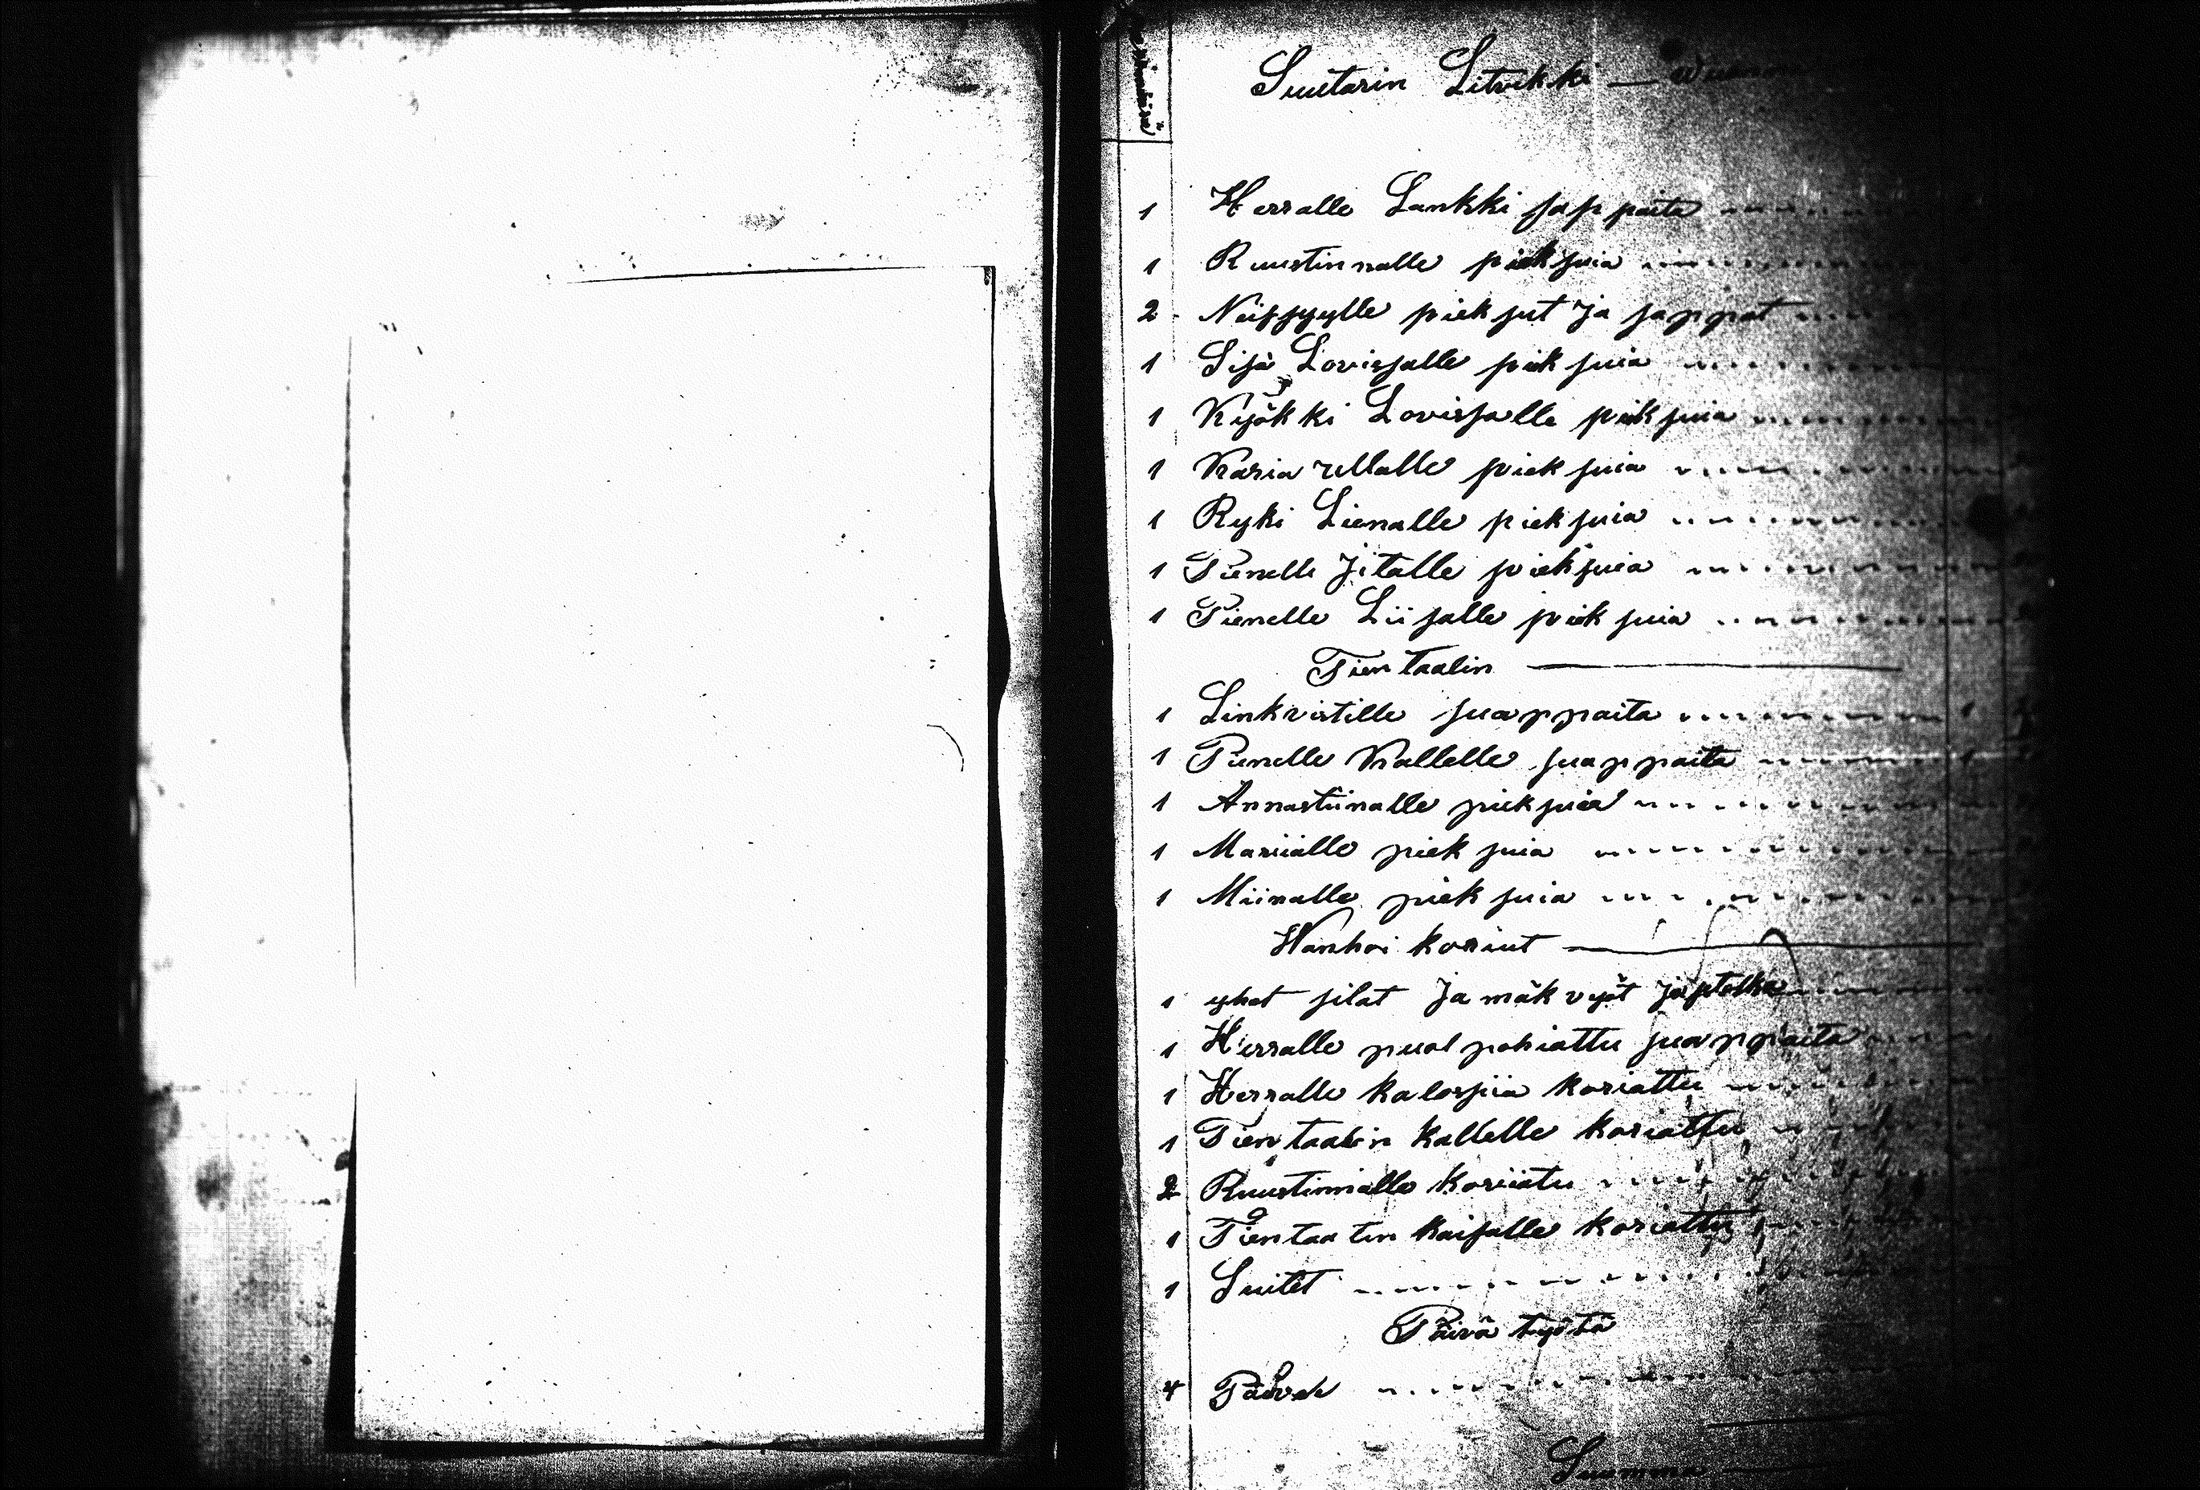 Suutarin Litvikki —
1 Herralle Lankki sappaita
1 Ruustinnalle pieksuia
2 Neissyylle pieksut Ja sappat
1 Sisä Lovissalle pieksuia
1 Kyökki Lovissalle pieksuia
1 Karia ullalle pieksuia
1 Ryki Lienalle pieksuia
1 Pienelle Jitalle pieksuia
1 Pienelle Liisalle pieksuia
Tientaalin
1 Linkvistille suappaita
1 Pienelle Kallelle suappaita
1 Annastiinalle pieksuia
1 Mariialle pieksuia
1 Miinalle pieksuia
Wanhoi korriut
1 yhet silat Ja mäkvyöt
1 Herralle puolpohiattu suappaita
1 Herralle kalossiia koriattu
1 Tientaalin Kallelle koriattu
2 Ruustinnalle koriiatu
1 Tientaalin Kaisalle koriattu
1 Suitet
Päivä työtä
4 Päivä
Summa